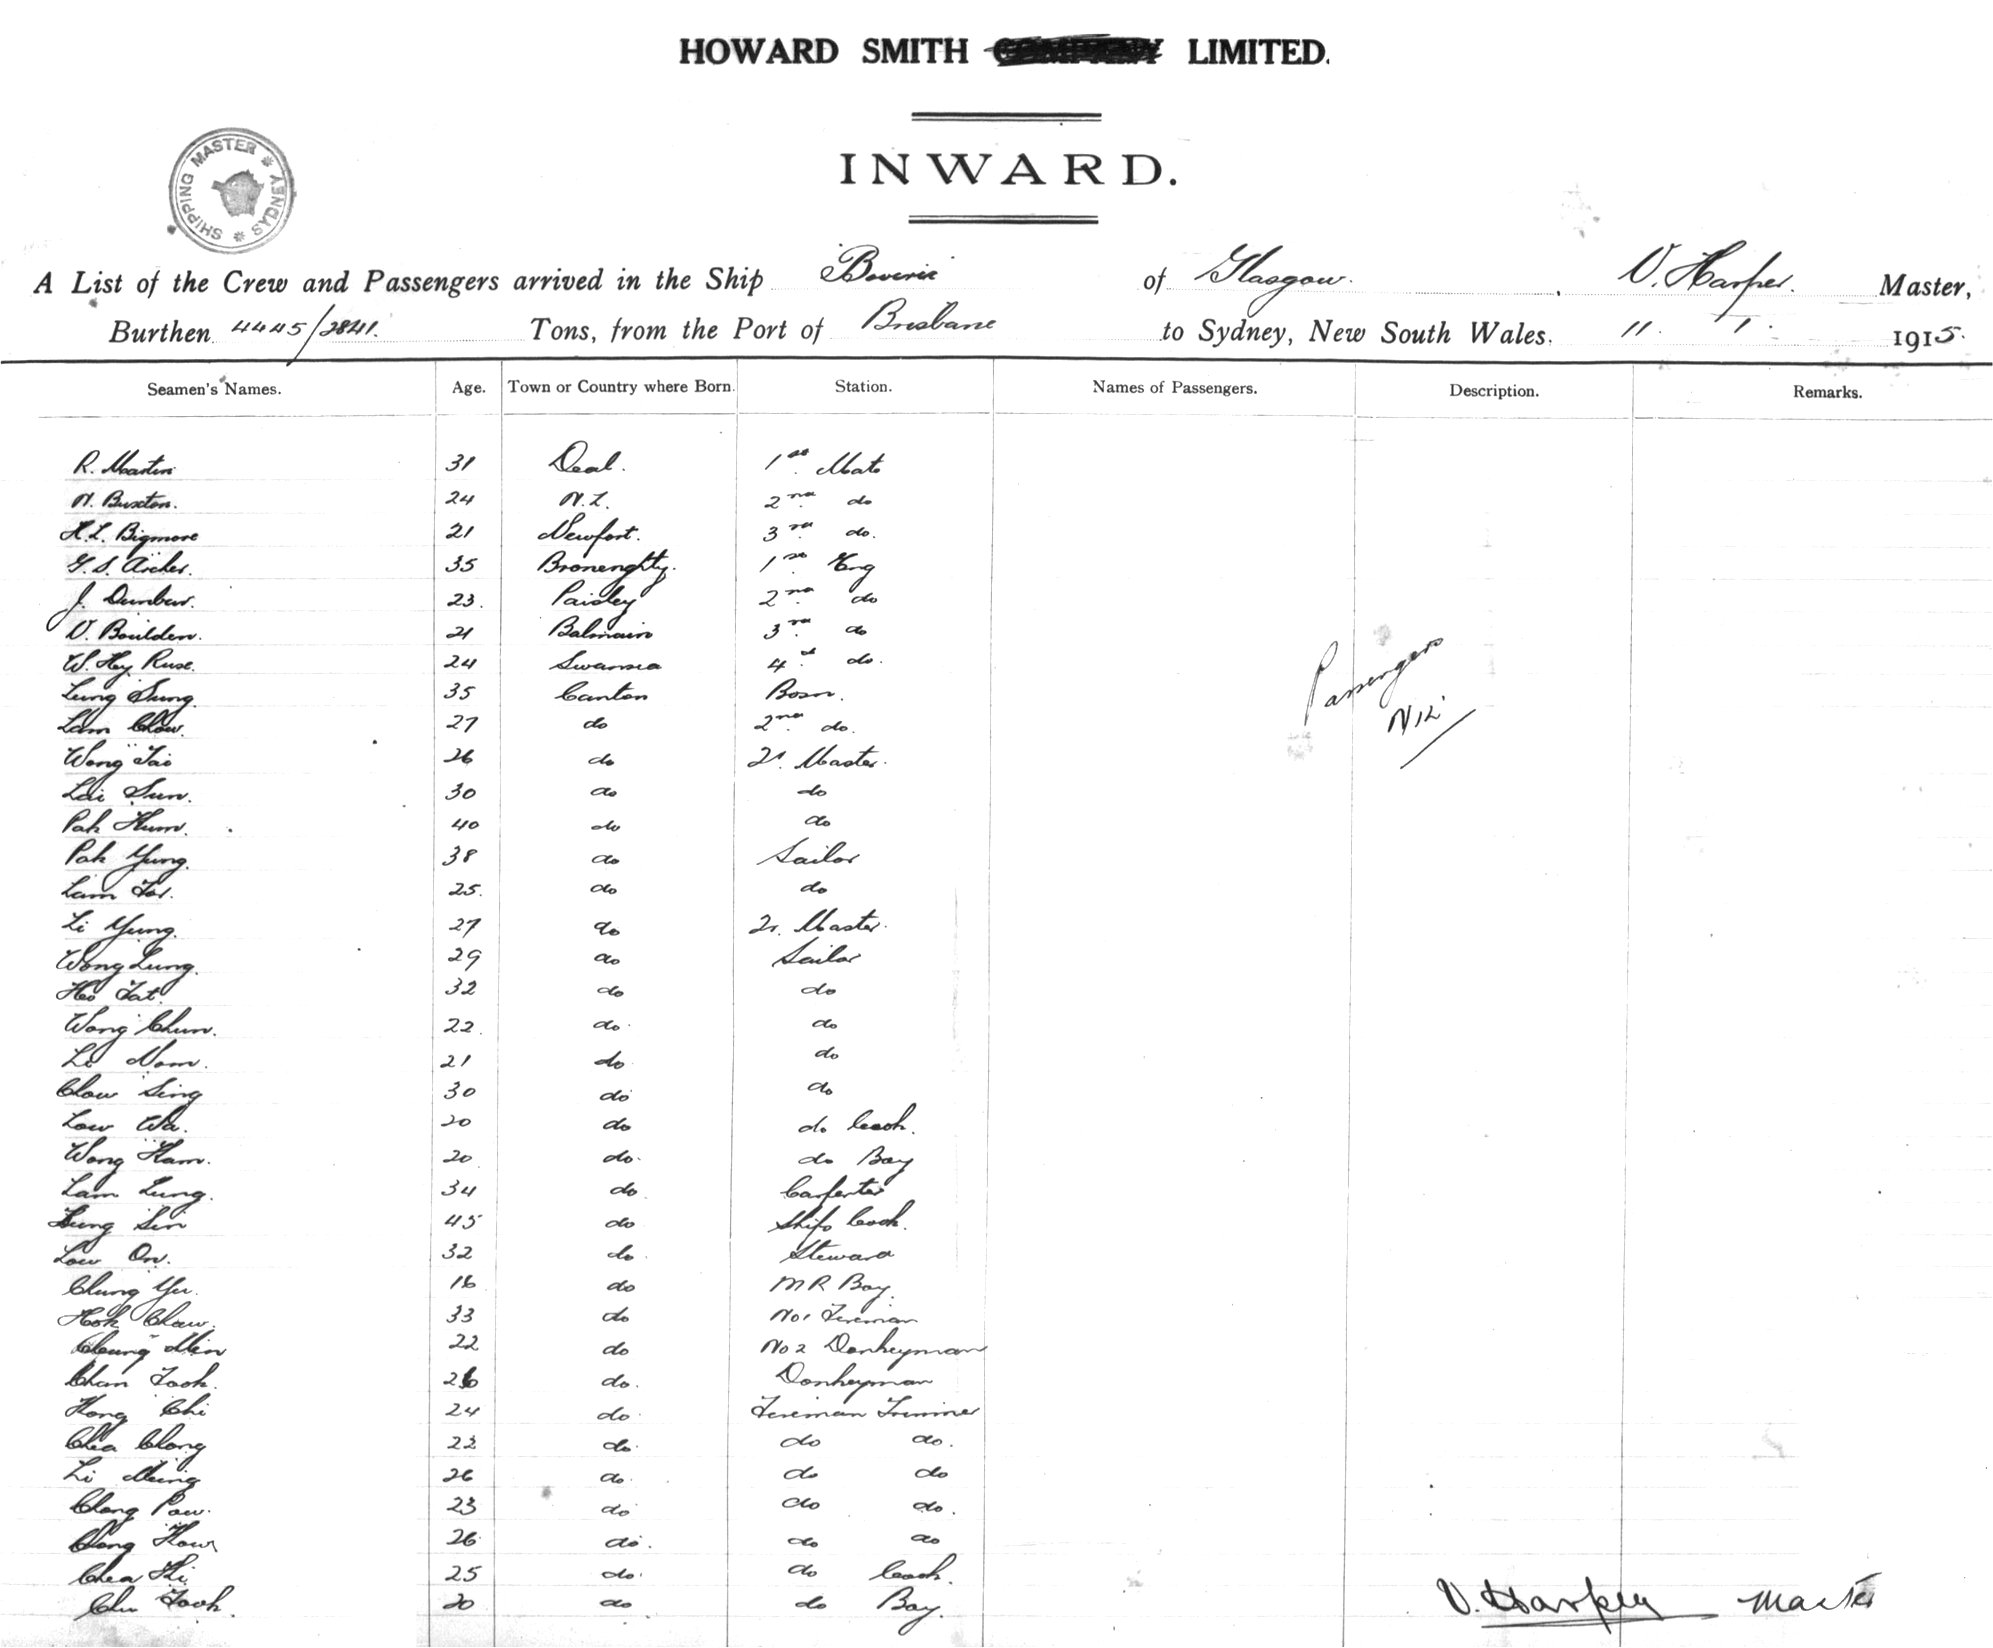 HOWARD SMITH LIMITED.
INWARD.
SHIPPING MASTER * SYDNEY *
A List of the Crew and Passengers arrived in the Ship Boveric of Glasgow. V. Harper. Master,
Burthen 4445/2841. Tons, from the Port of Brisbane to Sydney, New South Wales. 11. 1. 1915.
Seamen's Names. Age. Town or Country where Born. Station. Names of Passengers. Description. Remarks.
R. Martin 31 Deal. 1st Mate
N. Buxton. 24 N.Z. 2nd do
H.L. Bigmore 21 Newport. 3rd do.
G. S. Archer. 35 1st Eng
J. Dunbar. 23. Paisley 2nd do
V. Boulden. 21 Balmain 3rd do
W. Hey Ruse. 24 Swansea 4th do.
Lung Sung 35 Canton Bosn.
Lam Chow. 27 do 2nd do.
Wong Tai 26 do Qr. Master.
Lai Sun. 30 do do
Pak Hum. 40 do do
Pak Yung. 38 do Sailor
Lam For. 25. do do
Li Yung. 27 do Qr. Master.
Wong Lung. 29 do Sailor
Ho Fat. 32 do do
Wong Chun. 22. do. do
Li Nam. 21 do. do
Chow Sing 30 do do
Low Wa. 20 do do Cook.
Wong Ham. 20 do. do Boy
Lam Lung. 34 do Carpenter
Lung Sin 45 do Ships Cook.
Low On. 32 do. Steward
Chung Yu. 16 do M R Boy.
Hok Chow. 33 do No1 Fireman
Cheung Min 22 do No 2 Donkeyman
Chan Fook. 26 do. Donkeyman
Hong Chi 24 do. Fireman Trimmer
Chea Chong 22 do. do do.
Li Ming 26 do. do do
Chong Pow. 23 do do do.
Chong How 26 do. do do
Chea Hi. 25 do. do Cook.
Chu Fook. 20 do do Boy.
Passengers
Nil
V. Harper Master